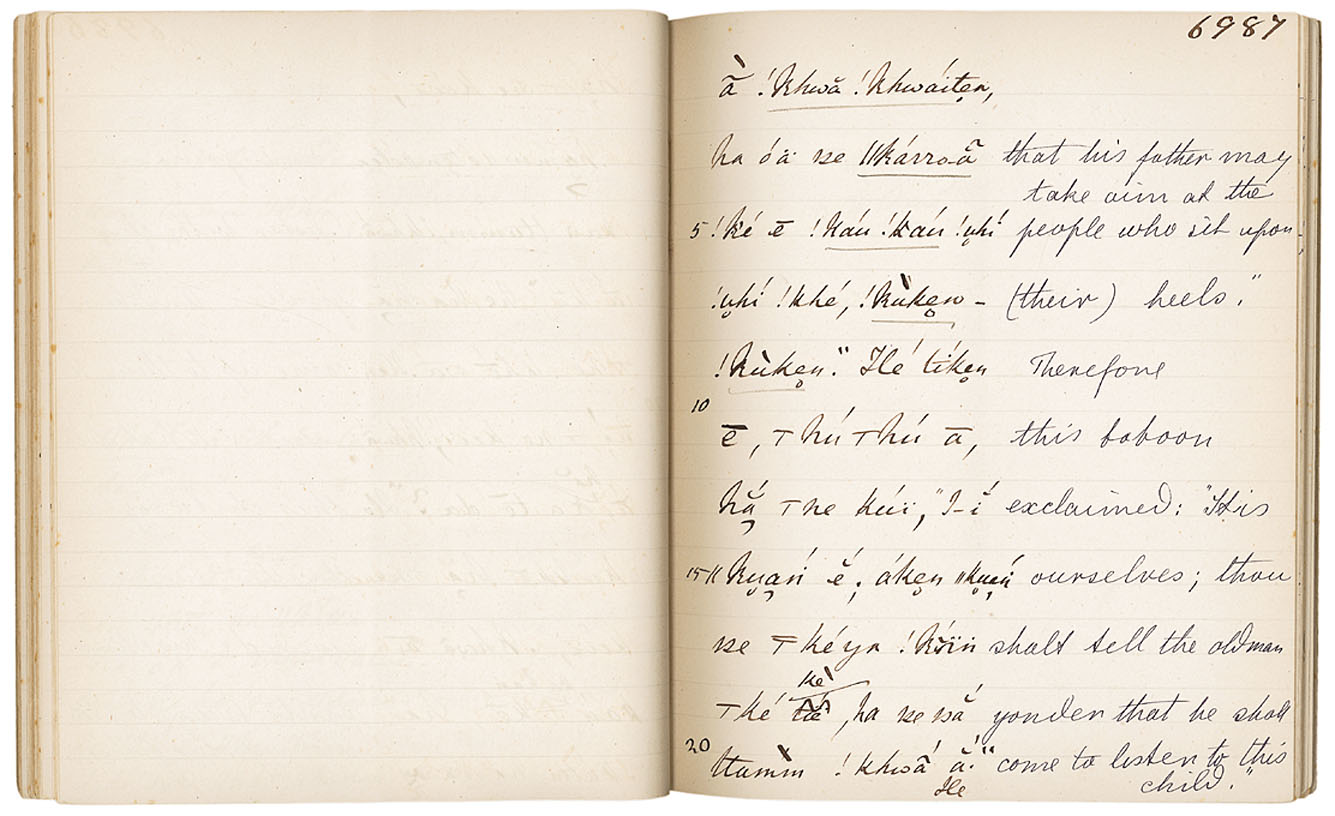 6987
ā̀ !khwā̆ !khwáitẹn,
ha óä se ||kárroã that his father may
take aim at the
5 !ké ē !káu !káu !ụhí people who sit upon
!ụhí !khé, !kùkẹn - (their) heels."
!kùkẹn." Hé tíkẹn Therefore
10
ē, ⊤hú ⊤hú ā, this baboon
hắ ⊤ne kúï, "I-ĭ́ exclaimed: "It is
15 ||kụạṅ́ ĕ́; ákẹn ||kụạṅ́ ourselves; thou
se ⊤kéya !kóïṅ shalt tell the old man
kè
⊤ké, ha se sắ yonder that he shall
20 ttumm̀ !khwā́ ắ!" come to listen to this
He child."